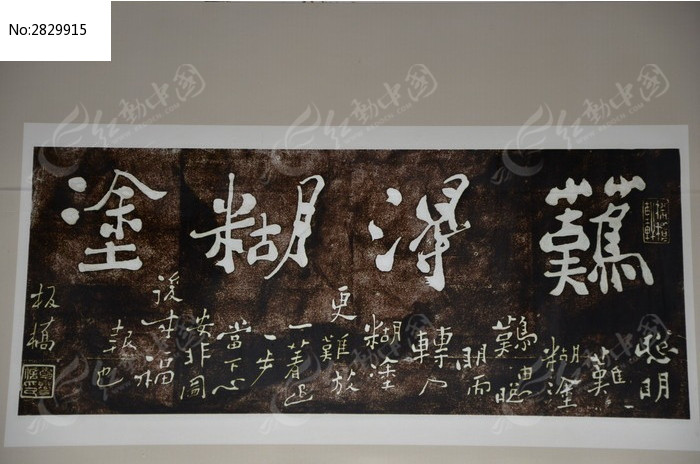 No:2829915
難得糊塗
聰明
難
糊塗
難由聰
明而
轉入
糊塗
更難放
一著退
一步
當下心
安非圖
後來福
報也
板橋